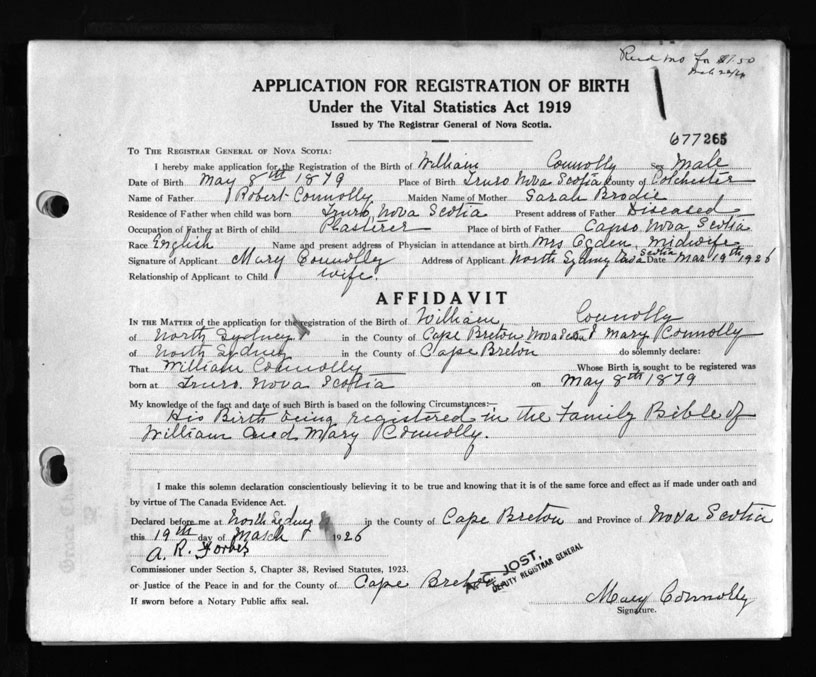 Recd mo for $1.50
APPLICATION FOR REGISTRATION OF BIRTH
Under the Vital Statistics Act 1919
Issued by The Registrar General of Nova Scotia.
677265
TO THE REGISTRAR GENERAL OF NOVA SCOTIA:
I hereby make application for the Registration of the Birth of William Connolly Sex Male
Date of Birth May 8th 1879 Place of Birth Truro Nova Scotia County of Colchester
Name of Father Robert Connolly Maiden Name of Mother Sarah Brodie
Residence of Father when child was born Truro, Nova Scotia Present address of Father Diseased
Occupation of Father at Birth of child Plasterer Place of birth of Father Canso Nova Scotia
Race English Name and present address of Physician in attendance at birth Mrs Ogden, Midwife
Signature of Applicant Mary Connolly Address of Applicant North Sydney Nova Scotia Date Mar 19th 1926
Relationship of Applicant to Child wife.
AFFIDAVIT
IN THE MATTER of the application for the registration of the Birth of William Connolly
of North Sydney in the County of Cape Breton Nova Scotia I Mary Connolly
of North Sydney in the County of Cape Breton do solemnly declare:
That William Connolly Whose Birth is sought to be registered was
born at Truro. Nova Scotia on May 8th 1879
My knowledge of the fact and date of such Birth is based on the following Circumstances:—
His Birth being registered in the Family Bible of
William and Mary Connolly.
I make this solemn declaration conscientiously believing it to be true and knowing that it is of the same force and effect as if made under oath and
by virtue of The Canada Evidence Act.
Declared before me at North Sydney in the County of Cape Breton and Province of Nova Scotia
this 19th day of March 1926
A. R. Forbes
Commissioner under Section 5, Chapter 38, Revised Statutes, 1923.
or Justice of the Peace in and for the County of Cape Breton
JOST,
DEPUTY REGISTRAR GENERAL
If sworn before a Notary Public affix seal.
Mary Connolly
Signature.